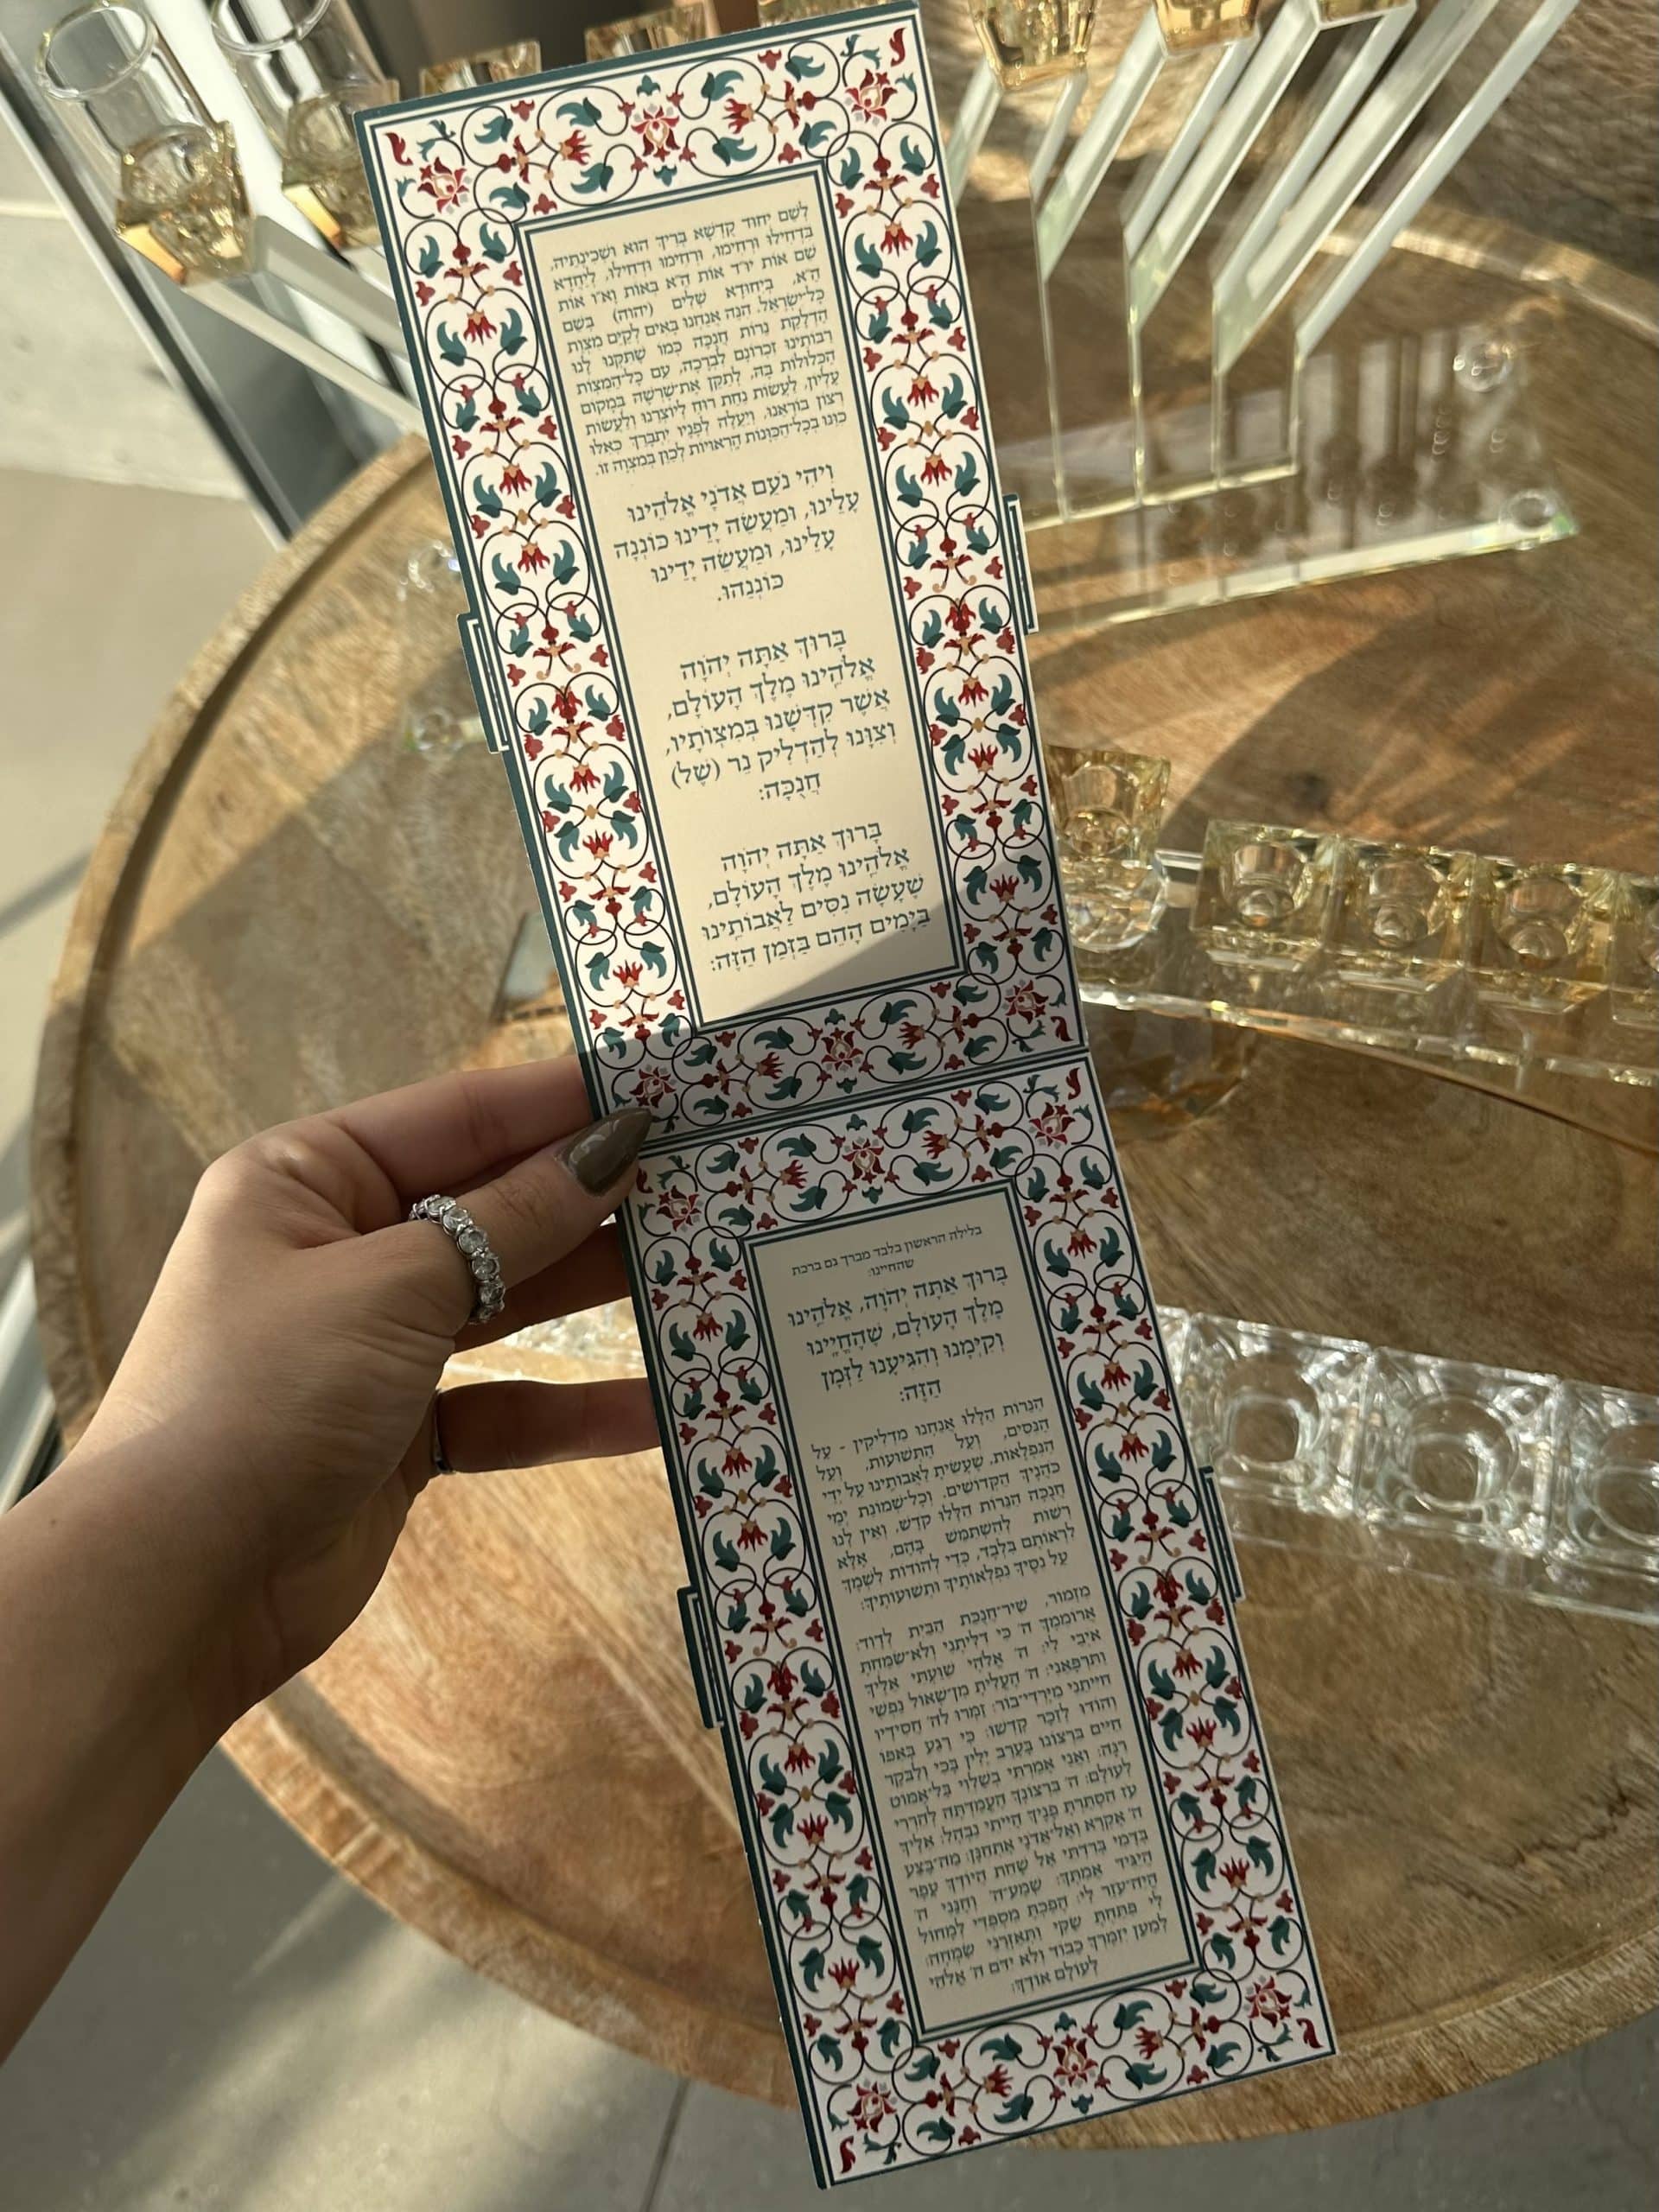 לְשֵׁם יִחוּד קֻדְשָׁא בְּרִיךְ הוּא וּשְׁכִינְתֵּיהּ,
בִּדְחִילוּ וּרְחִימוּ, וּרְחִימוּ וּדְחִילוּ, לְיַחֲדָא
שֵׁם אוֹת יוֹ״ד אוֹת הֵ״א בְּאוֹת וָא״ו אוֹת
הֵ״א, בְּיִחוּדָא שְׁלִים (יהוה) בְּשֵׁם
כָּל־יִשְׂרָאֵל. הִנֵּה אֲנַחְנוּ בָּאִים לְקַיֵּם מִצְוַת
הַדְלָקַת נֵרוֹת חֲנֻכָּה כְּמוֹ שֶׁתִּקְּנוּ לָנוּ
רַבּוֹתֵינוּ זִכְרוֹנָם לִבְרָכָה, עִם כָּל־הַמִּצְוֹת
הַכְּלוּלוֹת בָּהּ, לְתַקֵּן אֶת־שָׁרְשָׁהּ בְּמָקוֹם
עֶלְיוֹן, לַעֲשׂוֹת נַחַת רוּחַ לְיוֹצְרֵנוּ וְלַעֲשׂוֹת
רְצוֹן בּוֹרְאֵנוּ. וְיַעֲלֶה לְפָנָיו יִתְבָּרַךְ כְּאִלּוּ
כִּוַּנּוּ בְּכָל־הַכַּוָּנוֹת הָרְאוּיוֹת לְכַוֵּן בְּמִצְוָה זוֹ.
וִיהִי נֹעַם אֲדֹנָי אֱלֹהֵינוּ
עָלֵינוּ, וּמַעֲשֵׂה יָדֵינוּ כּוֹנְנָה
עָלֵינוּ, וּמַעֲשֵׂה יָדֵינוּ
כּוֹנְנֵהוּ.
בָּרוּךְ אַתָּה יְהֹוָה
אֱלֹהֵינוּ מֶלֶךְ הָעוֹלָם,
אֲשֶׁר קִדְּשָׁנוּ בְּמִצְוֹתָיו,
וְצִוָּנוּ לְהַדְלִיק נֵר (שֶׁל)
חֲנֻכָּה:
בָּרוּךְ אַתָּה יְהֹוָה
אֱלֹהֵינוּ מֶלֶךְ הָעוֹלָם,
שֶׁעָשָׂה נִסִּים לַאֲבוֹתֵינוּ
בַּיָּמִים הָהֵם בַּזְּמַן הַזֶּה:
בלילה הראשון בלבד מברך גם ברכת
שהחיינו:
בָּרוּךְ אַתָּה יְהֹוָה, אֱלֹהֵינוּ
מֶלֶךְ הָעוֹלָם, שֶׁהֶחֱיָינוּ
וְקִיְּמָנוּ וְהִגִּיעָנוּ לַזְּמַן
הַזֶּה:
הַנֵּרוֹת הַלָּלוּ אֲנַחְנוּ מַדְלִיקִין - עַל
הַנִּסִּים, וְעַל הַתְּשׁוּעוֹת, וְעַל
הַנִּפְלָאוֹת, שֶׁעָשִׂיתָ לַאֲבוֹתֵינוּ עַל יְדֵי
כֹּהֲנֶיךָ הַקְּדוֹשִׁים. וְכָל־שְׁמוֹנַת יְמֵי
חֲנֻכָּה הַנֵּרוֹת הַלָּלוּ קֹדֶשׁ, וְאֵין לָנוּ
רְשׁוּת לְהִשְׁתַּמֵּשׁ בָּהֶם, אֶלָּא
לִרְאוֹתָם בִּלְבַד, כְּדֵי לְהוֹדוֹת לִשְׁמֶךָ
עַל נִסֶּיךָ נִפְלְאוֹתֶיךָ וִתְשׁוּעוֹתֶיךָ:
מִזְמוֹר, שִׁיר־חֲנֻכַּת הַבַּיִת לְדָוִד:
אֲרוֹמִמְךָ ה' כִּי דִלִּיתָנִי וְלֹא־שִׂמַּחְתָּ
אֹיְבַי לִי: ה' אֱלֹהָי שִׁוַּעְתִּי אֵלֶיךָ
וַתִּרְפָּאֵנִי: ה' הֶעֱלִיתָ מִן־שְׁאוֹל נַפְשִׁי
חִיִּיתַנִי מִיָּרְדִי־בוֹר: זַמְּרוּ לַה' חֲסִידָיו
וְהוֹדוּ לְזֵכֶר קָדְשׁוֹ: כִּי רֶגַע בְּאַפּוֹ
חַיִּים בִּרְצוֹנוֹ בָּעֶרֶב יָלִין בֶּכִי וְלַבֹּקֶר
רִנָּה: וַאֲנִי אָמַרְתִּי בְשַׁלְוִי בַּל־אֶמּוֹט
לְעוֹלָם: ה' בִּרְצוֹנְךָ הֶעֱמַדְתָּה לְהַרְרִי
עֹז הִסְתַּרְתָּ פָנֶיךָ הָיִיתִי נִבְהָל: אֵלֶיךָ
ה' אֶקְרָא וְאֶל־אֲדֹנָי אֶתְחַנָּן: מַה־בֶּצַע
בְּדָמִי בְּרִדְתִּי אֶל שָׁחַת הֲיוֹדְךָ עָפָר
הֲיַגִּיד אֲמִתֶּךָ: שְׁמַע־ה' וְחָנֵּנִי ה'
הֱיֵה־עֹזֵר לִי: הָפַכְתָּ מִסְפְּדִי לְמָחוֹל
לִי פִּתַּחְתָּ שַׂקִּי וַתְּאַזְּרֵנִי שִׂמְחָה:
לְמַעַן יְזַמֶּרְךָ כָבוֹד וְלֹא יִדֹּם ה' אֱלֹהַי
לְעוֹלָם אוֹדֶךָּ: